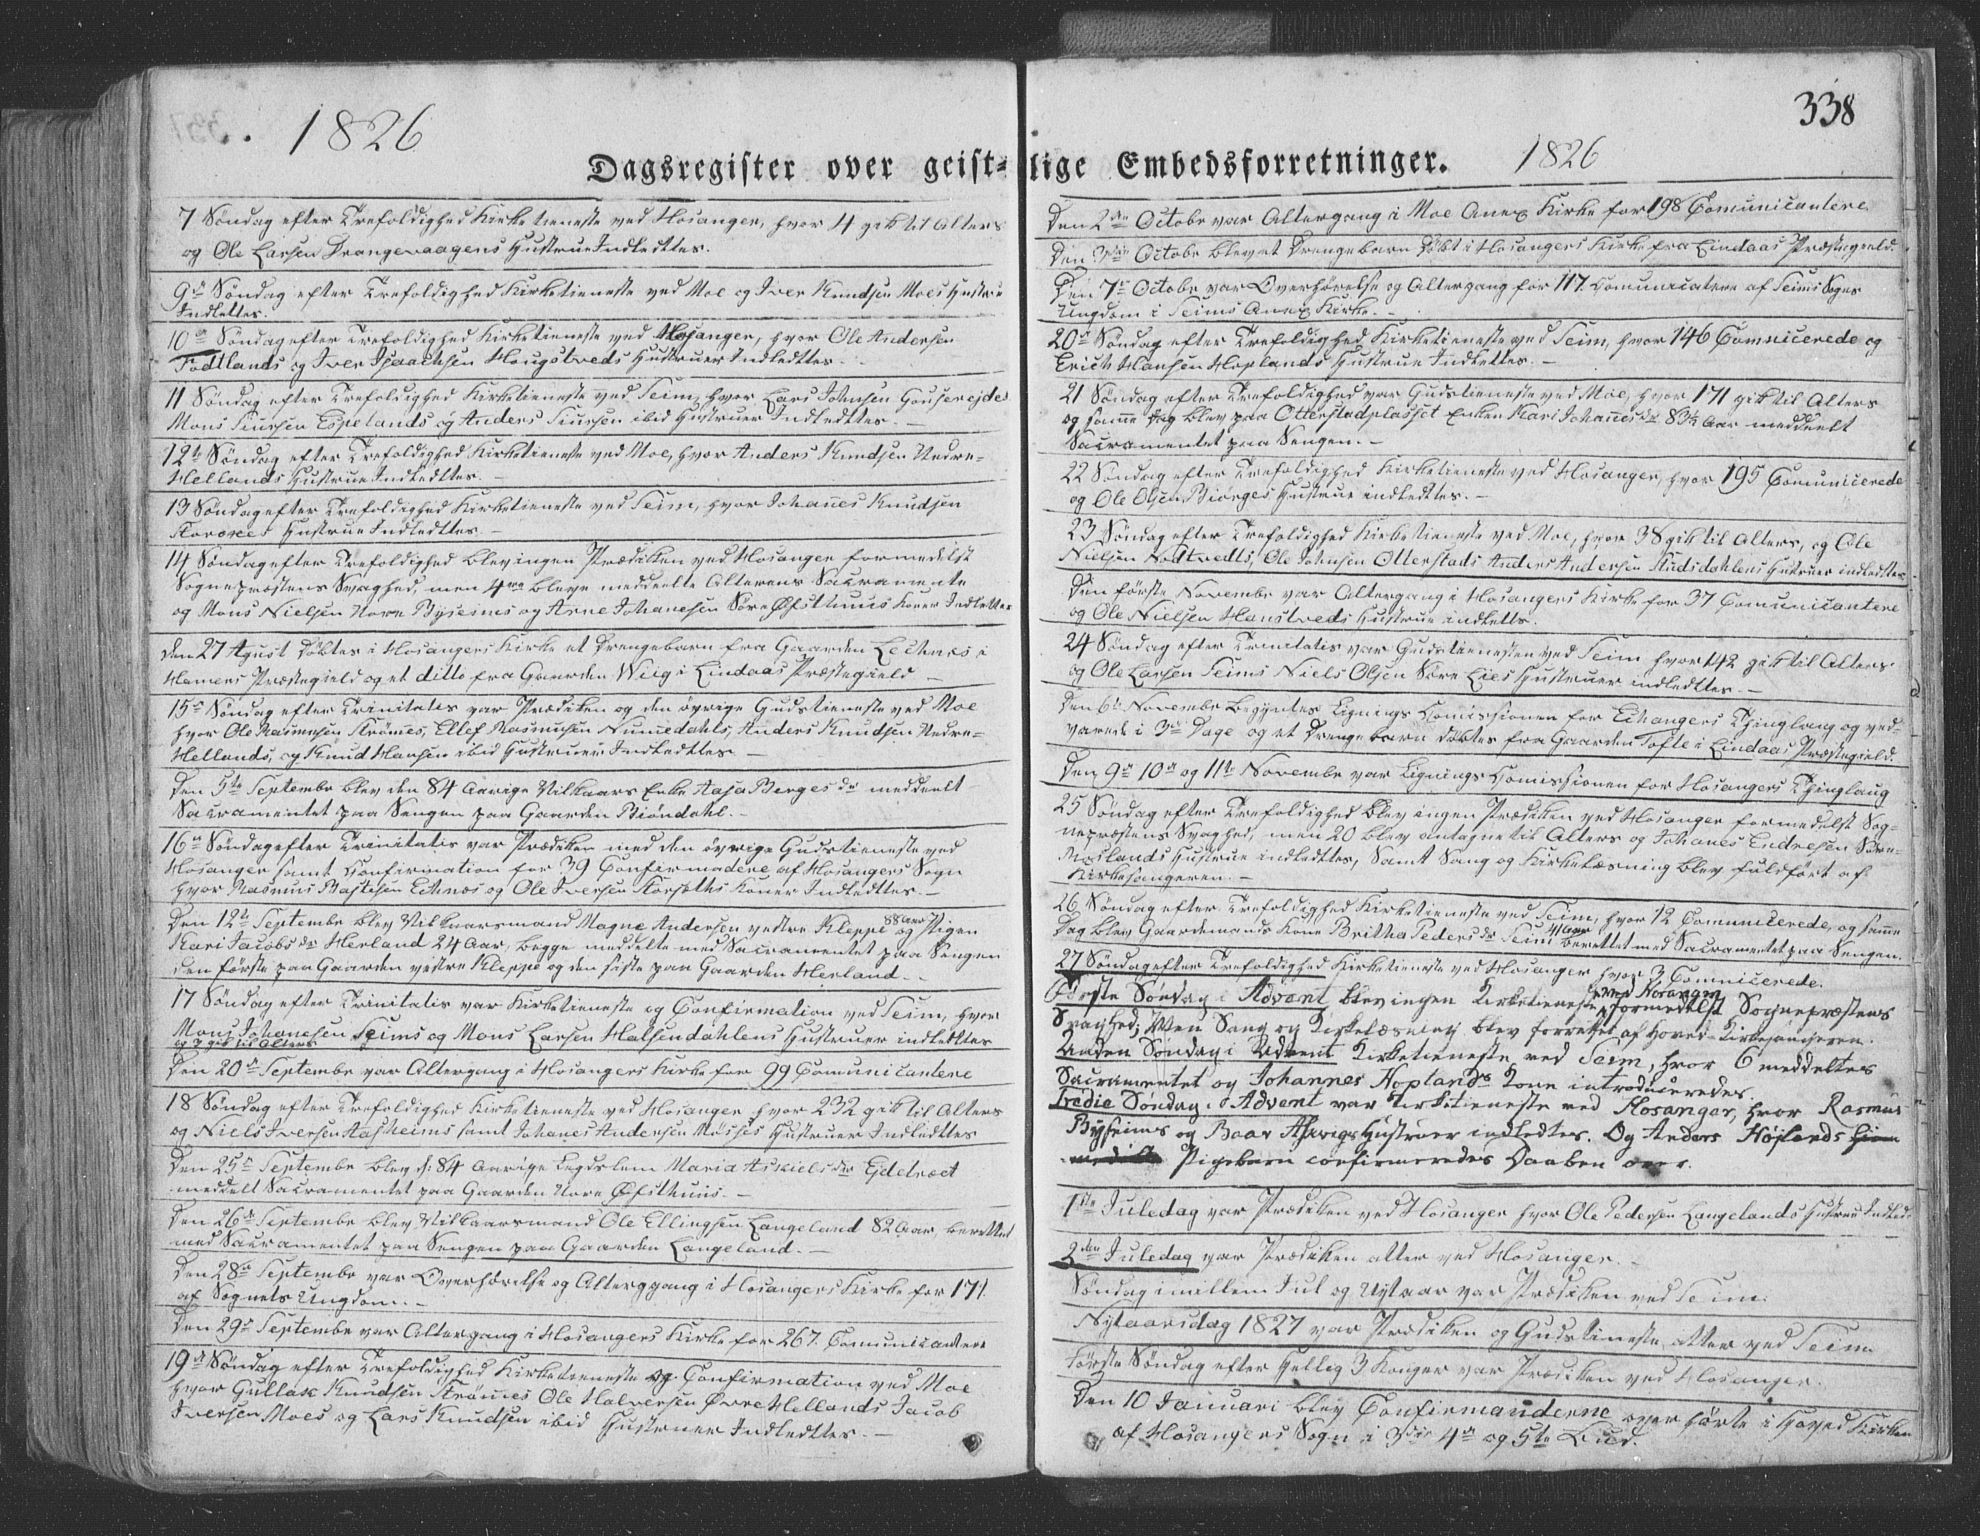 1826
Dagsregister over geist-
7 Søndag efter Trefoldighed Kirketieneste ved Hosanger, hvor 4 gik til Alters
og Ole Larsen Drangevaagens Hustrue Indledtes.
9de Søndag efter Trefoldighed Kirketieneste ved Moe og Iver Knudsen Moes Hustrue
Indledtes.
10de Søndag efter Trefoldighed Kirketieneste ved Hosanger, hvor Ole Andersen
Fodtlands og Iver Isaachsen Hougstveds Hustruer Indledttes.
11 Søndag efter Trefoldighed Kirketieneste ved Seim, hvor Lars Johnsen
Mons Siursen Espelands og Anders Siursen ibid Hustruer Indledttes. —
12te Søndag efter Trefoldighed Kirketieneste ved Moe, hvor Anders Knudsen Nedre-
Hellands Hustrue Indledttes. —
13 Søndag efter Trefoldighed Kirketieneste ved Seim, hvor Johannes Knudsen
Hustrue Indledttes —
14 Søndag efter Trefoldighed blev ingen Prædiken ved Hosanger formedelst
Sognepræstens Svaghed, men 4re bleve meddeelte Alterens Sacramente
og Mons Nielsen Nore Byseims og Arne Johanesen Søre Øfsthuus Koner Indledttes
den 27 Agust Døbtes i Hosangers Kirke et Drengebarn fra Gaarden Lechnes i
Hamers Præstegield og et ditto fra Gaarden Wiig i Lindaas Præstegield —
15de Søndag efter Trinitatis var Prædiken og den øvrige Gudstieneste ved Moe
hvor Ole Rasmusen Strømes, Ellef Rasmusen Numedahls, Anders Knudsen Nedre-
Hellands, og Knud Hansen ibid Hustruer Indledttes
Den 5te Septembr blev den 84 Aarige Vilkaars Enke Aasa Berges dr meddeelt
Sacramentet paa Sengen paa Gaarden Biøndahl. —
16de Søndag efter Trinitatis var Prædiken med den øvrige Gudstieneste ved
Hosanger samt Confirmation for 39 Confirmadere af Hosangers Sogn
hvor Rasmus Bastisen Echnæs og Ole Iversen Koner Indledttes. —
Den 12te Septembr blev Vilkaarsmand Magne Andersen vestre Kleppe 88 Aar og Pigen
Kari Jacobs dr Herland 24 Aar, begge meddelte med Sacramentet paa Sengen
den første paa Gaarden vestre Kleppe og den siste paa Gaarden Herland. —
17 Søndag efter Trinitatis var Kirketieneste og Confirmation ved Seim, hvor
Mons Johanesen Seims og Mons Larsen Halsendahlens Hustruer indledttes
og 7 gik til Alters
Den 20de Septembr var Altergang i Hosangers Kirke for 99 Comunicantere
18 Søndag efter Trefoldighed Kirketieneste ved Hosanger hvor 232 gik til Alters
og Niels Iversen Aasheims samt Johanes Andersen Hustruer Indledttes
Den 25de Septembr blev d: 84 Aarige Legdslem Maria Askiels dr
meddelt Sacramentet paa Gaarden Nore Øfsthuus. —
Den 26de Septembr blev Vilkaarsmand Ole Ellingsen Langeland 82 Aar berettet
med Sacramentet paa Sengen paa Gaarden Langeland. —
Den 28de Septembr var Overhørelse og Altergang i Hosangers Kirke for 171
af Sognets Ungdom. —
Den 29de Septembr var Altergang i Hosangers Kirke for 267. Comunicantere
19de Søndag efter Trefoldighed Kirketieneste og Confirmation ved Moe
hvor Gullak Knudsen Strømes Ole Halversen Øvre Hellands Jacob
Iversen Moes og Lars Knudsen ibid Hustruer Indledttes. —
338
lige Embedsforretninger.
1826
Den 2den Octobr var Altergang i Moe Anex Kirke for 198 Comunicantere
Den 3die Octobr blev et Drengebarn Døbt i Hosangers Kirke fra Lindaas Præstegield.
Den 7de Octobr var Overhørelse og Altergang for 117 Comunicatere af Seims Sogns
Ungdom i Seims Anex Kirke. —
20de Søndag efter Trefoldighed Kirketieneste ved Seim, hvor 146 Comnicerede og
Erich Hansen Hoplands Hustrue Indledttes. —
21 Søndag efter Trefoldighed var Gudstieneste ved Moe, hvor 171 gik til Alters
og samme Dag blev paa Otterstadplasset Enken Kari Johanes dr 83½ Aar meddeelt
Sacramentet paa Sengen. —
22 Søndag efter Trefoldighed Kirketieneste ved Hosanger, hvor 195 Comunicerede
og Ole Olsen Biørges Hustrue indledttes. —
23 Søndag efter Trefoldighed Kirketieneste ved Moe, hvor 38 gik til Alters, og Ole
Nielsen Nodtvedts, Ole Johnsen Otterstads Anders Andersen Hustruer indledttes
Den første Novembr var Altergang i Hosangers Kirke for 37 Comunicantere
og Ole Nielsen Hanstveds Hustrue indledtts.
24 Søndag efter Trinitatis var Gudstienesten ved Seim hvor 142 gik til Alters
og Ole Larsen Seims Niels Olsen Søre Lies Hustruer indledttes. —
Den 6te Novembr begyntes Lignings Comissionen for Eikangers Thinglaug og ved-
varede i 3de Dage og et Drengebarn døbtes fra Gaarden Tofte i Lindaas Præstegield.
Den 9de 10de og 11te Novembr var Lignings Comissionen for Hosangers Thinglaug
25 Søndag efter Trefoldighed blev ingen Prædiken ved Hosanger formedelst Sog-
nepræstens Svaghed, men 20 blev antagne til Alters og Johanes Endresen Søre-
Moslands Hustrue indledttes, samt Sang og Kirkelæsning blev fuldført af
Kirkesangeren. —
26 Søndag efter Trefoldighed Kirketieneste ved Seim, hvor 12 Comunicerede, og samme
Dag blev Gaardmands Kone Britha Peders dr Seim 41 Aar berettet med Sacramentet paa Sengen.
27 Søndag efter Trefoldighed Kirketieneste ved Hosanger hvor 3 Comnicerede.
Første Søndag i Advent blev ingen Kirketieneste ved Hosanger formedelst Sognepræstens
Svaghed; Men Sang og Kirkelæsning blev forrettet af Hoved-Kirkesangeren.
Anden Søndag i Advent Kirketieneste ved Seim, hvor 6 meddeltes
Sacramentet og Johannes Hoplands Kone introduceredes.
Tredie Søndag i Advent var Kirketieneste ved Hosanger, hvor Rasmus
Byseims og Baar Hustruer indledtes. Og Anders Højlands
Pigebarn confirmeredes Daaben over.
1ste Juledag var Prædiken ved Hosanger hvor Ole Pedersen Langelands Hustrue Indled.
2den Juledag var Prædiken atter ved Hosanger.
Søndag imellem Jul og Nytaar var Prædiken ved Seim.
Nytaarsdag 1827 var Prædiken og Gudstieneste atter ved Seim
første Søndag efter Hellig 3 Konger var Prædiken ved Hosanger.
Den 10 Januari blev Confirmanderne overhørte i Hoved Kirken
af Hosangers Sogn i 3die 4de og 5te Bud.